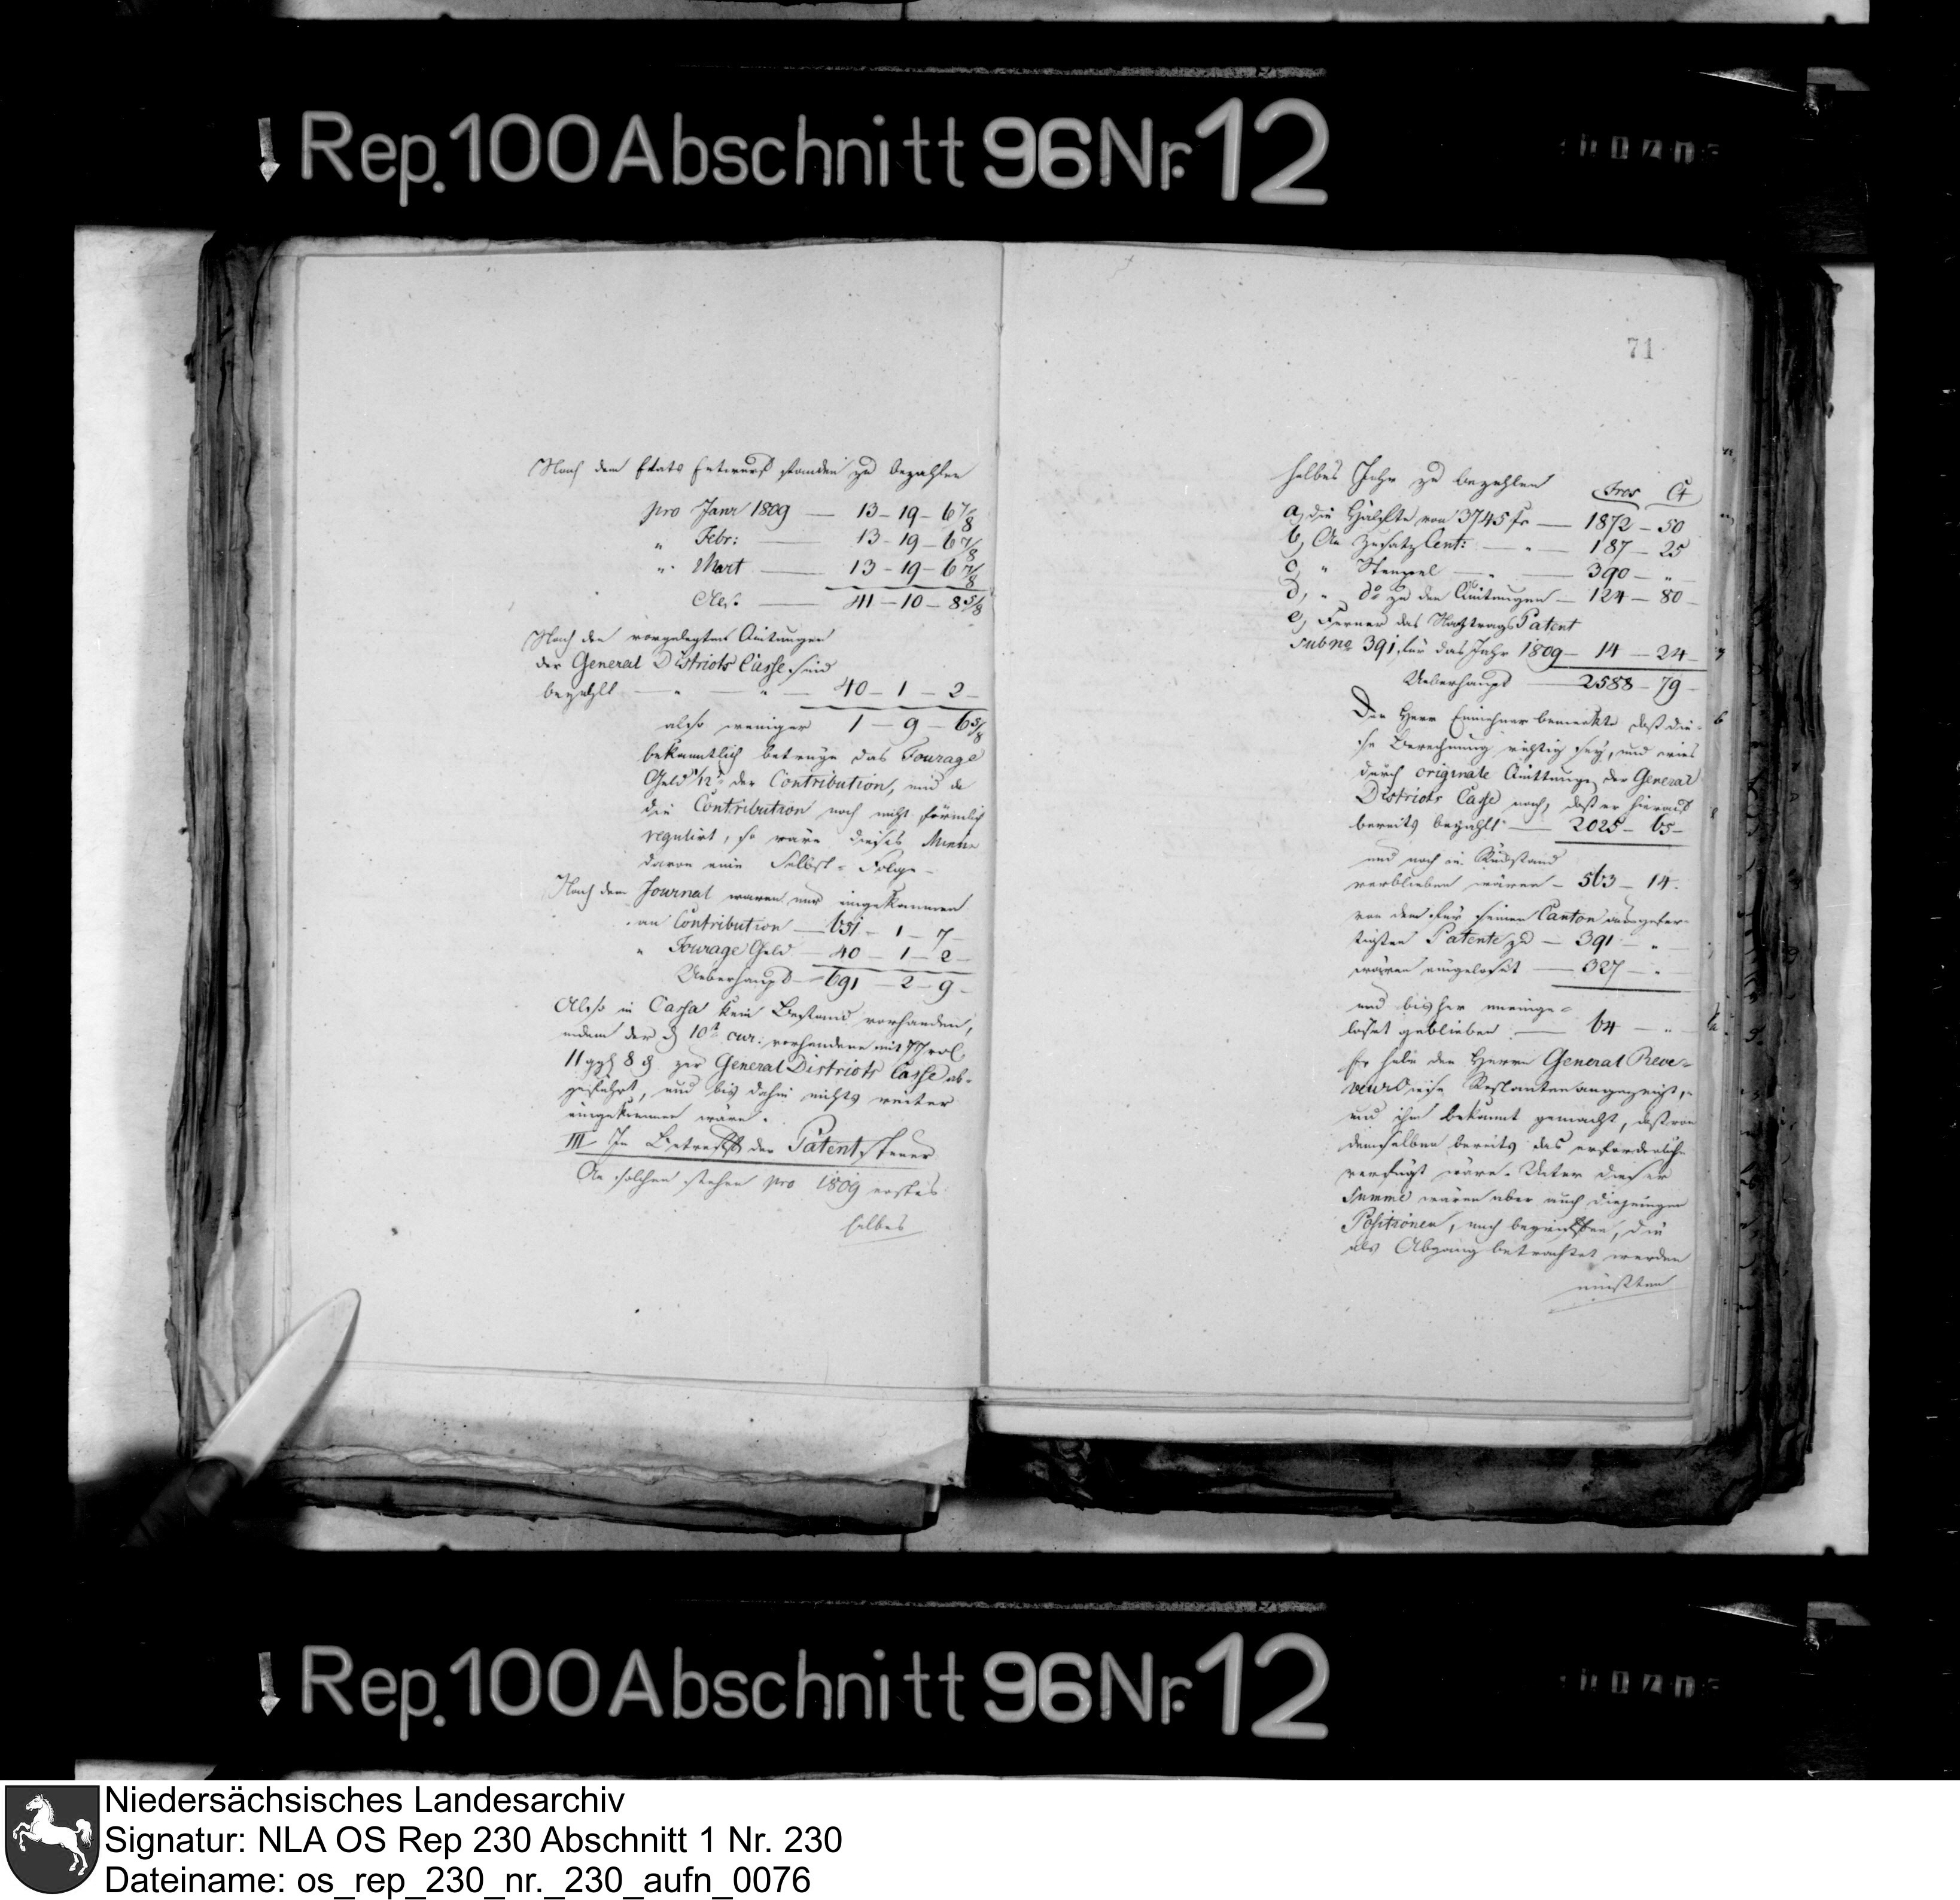 Rep. 100 Abschnitt 96 Nr. 12
Nach dem Etats Entwurf standen zu bezahlen
pro Janr 1809 — 13 - 19 - 6 7/8
" Febr: — 13 - 19 - 6 7/8
" Mart — 13 - 19 - 6 7/8
Also — 41 - 10 - 8 5/8
Nach den vorgelegten Quitungen
der General Districts Casse sind
bezahlt — " — " — 40 - 1 - 2 -
also weniger 1 - 9 - 6 5/8
bekanntlich betrüge das Fourage
Geld 1/12 der Contribution, und da
die Contribution noch nicht förmlich
regulirt, so wäre dieses Minus
davon eine Selbst-Folge -
Nach dem Journal waren nur eingekommen
an Contribution — 651 - 1 - 7 -
" Fourage Geld — 40 - 1 - 2 -
Ueberhaupt — 691 - 2 - 9 -
Also in Cassa kein Bestand vorhanden,
indem der d 10t cur: vorhandene mit 77 rl
11 ggl 8 d zur General Districts Casse ab-
geführt, und bis dahin nichts weiter
eingekommen wäre.
III In Betreff der Patent Steuer
An solcher stehen pro 1809 erstes
halbes
71
halbes Jahr zu bezahlen Frcs Ct
a, die Hälfte von 3745 fr — 1872 - 50
b, An Zusatz Cent: — " — 187 - 25
c, " Stempel — " — 390 - " -
d, " do zu den Quitungen — 124 - 80 -
e, Ferner das Nachtrags Patent
sub no 391 für das Jahr 1809 - 14 - 24 -
Ueberhaupt — 2588 - 79 -
Der Herr Einnehmer bemerkte daß die-
se Berechnung richtig sey, und wies
durch originale Quittungen der General
Districts Casse nach, daß er hierauf
bereits bezahlt — 2025 - 65 -
und noch in Rückstand
verblieben wären - 563 - 14.
von dem für seinen Canton ausgefer-
tigten Patente zu — 391 - " -
wären eingelöset — 327 - " -
und bisher uneinge-
löset geblieben — 64 - " -
Er habe dem Herrn General Rece-
veur diese Restanten angezeigt,
und ihm bekannt gemacht, daß von
demselben bereits das erforderliche
verfügt wäre. Unter dieser
Summe wären aber auch diejenigen
Positionen, noch begriffen, die
als Abgang betrachtet werden
müßten
Rep. 100 Abschnitt 96 Nr. 12
Niedersächsisches Landesarchiv
Signatur: NLA OS Rep 230 Abschnitt 1 Nr. 230
Dateiname: os_rep_230_nr._230_aufn_0076